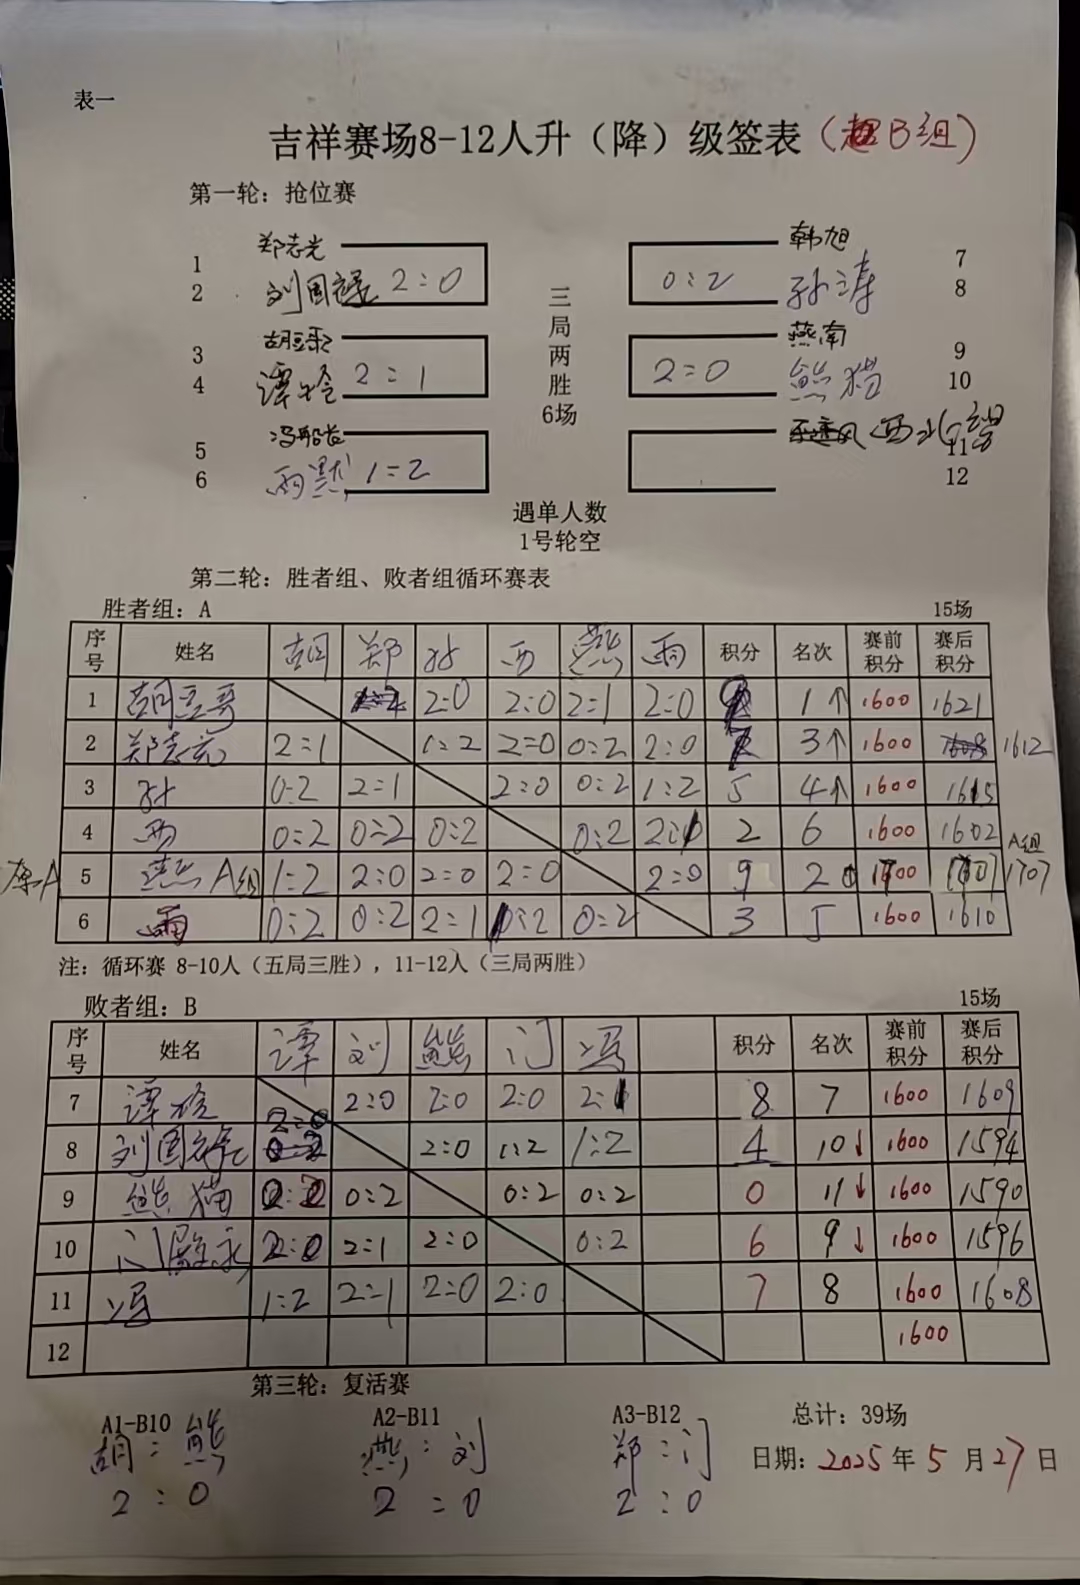 表一
吉祥赛场8-12人升（降）级签表（超B组）
第一轮：抢位赛
1 郑志光
2 刘国禄 2:0
3 胡豆哥
4 谭 2:1
5 冯船长
6 雨默 1:2
三局两胜
6场
韩旭 7
0:2 孙涛 8
燕南 9
2:0 熊猫 10
西北 11
12
遇单人数
1号轮空
第二轮：胜者组、败者组循环赛表
胜者组：A 15场
序号 姓名 胡 郑 孙 西 燕 雨 积分 名次 赛前积分 赛后积分
1 胡豆哥 2:0 2:0 2:1 2:0 1↑ 1600 1621
2 郑志光 2:1 1:2 2:0 0:2 2:0 3↑ 1600 1612
3 孙 0:2 2:1 2:0 0:2 1:2 5 4↑ 1600 1615
4 西 0:2 0:2 0:2 0:2 2 6 1600 1602
原A 5 燕 A组 1:2 2:0 2:0 2:0 2:0 9 2 A组 1707
6 雨 0:2 0:2 2:1 0:2 0:2 3 5 1600 1610
注：循环赛 8-10人（五局三胜），11-12人（三局两胜）
败者组：B 15场
序号 姓名 谭 刘 熊 门 冯 积分 名次 赛前积分 赛后积分
7 谭 2:0 2:0 2:0 2:1 8 7 1600 1609
8 刘国禄 2:0 1:2 1:2 4 10↓ 1600 1594
9 熊猫 0:2 0:2 0:2 0 11↓ 1600 1590
10 门 2:1 2:0 0:2 6 9↓ 1600 1596
11 冯 1:2 2:1 2:0 2:0 7 8 1600 1608
12 1600
第三轮：复活赛
A1-B10 A2-B11 A3-B12 总计：39场
胡：熊 燕：刘 郑：门
日期：2025年5月27日
2:0 2:0 2:0